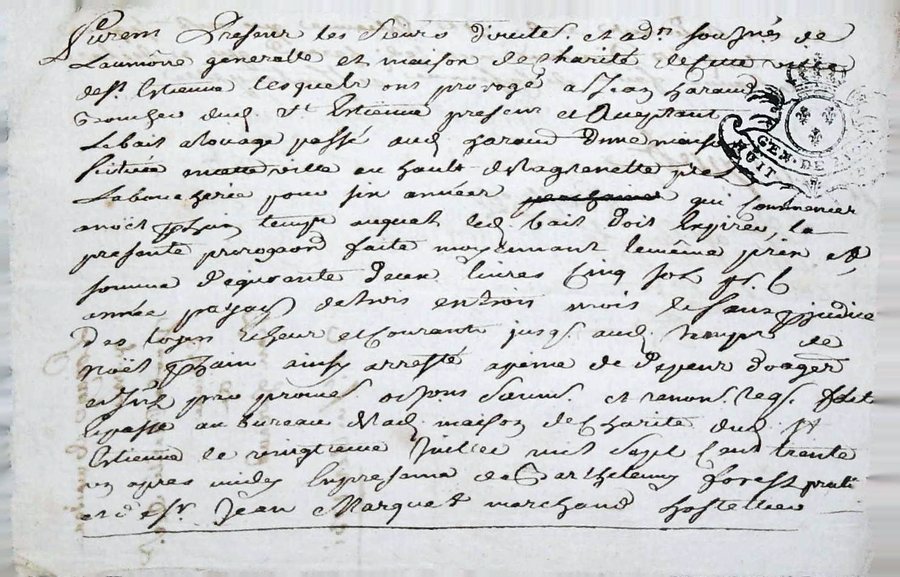 furent Presens les sieurs directrs. et adrs. sousnés de
Laumône generalle et maison de charité de cette ville
de st. Estienne lesquels ont prorogé a Jean Garand
Boucher dud. st Estienne present et acceptant
Le bail a louage passé aud. Garand d'une maison
scituée en cette ville au hault de la grenette près
La boucherie pour six années prochaines qui commencer
a noël pchain temps auquel led. bail doit Expirer, la
presente prorogaon faite moyennant le même prix et
somme de quarante deux livres cinq sols p. c.
année payab. de trois en trois mois le sans pjudice
des loyers echeus et courants jusq. aud. temps de
noël pchain ainsy arresté a peine de depens domges
et Int. par promes. obons soums. et renons. reqs. fait
et passé au bureau de lad. maison de Charité dud. st
Estienne le vingtieme Juillet mil sept cent trente
un apres midy En presence de Barthelemy forest prati
et d. sr. Jean Marquet marchand hostellier
GEN. DE
HUIT